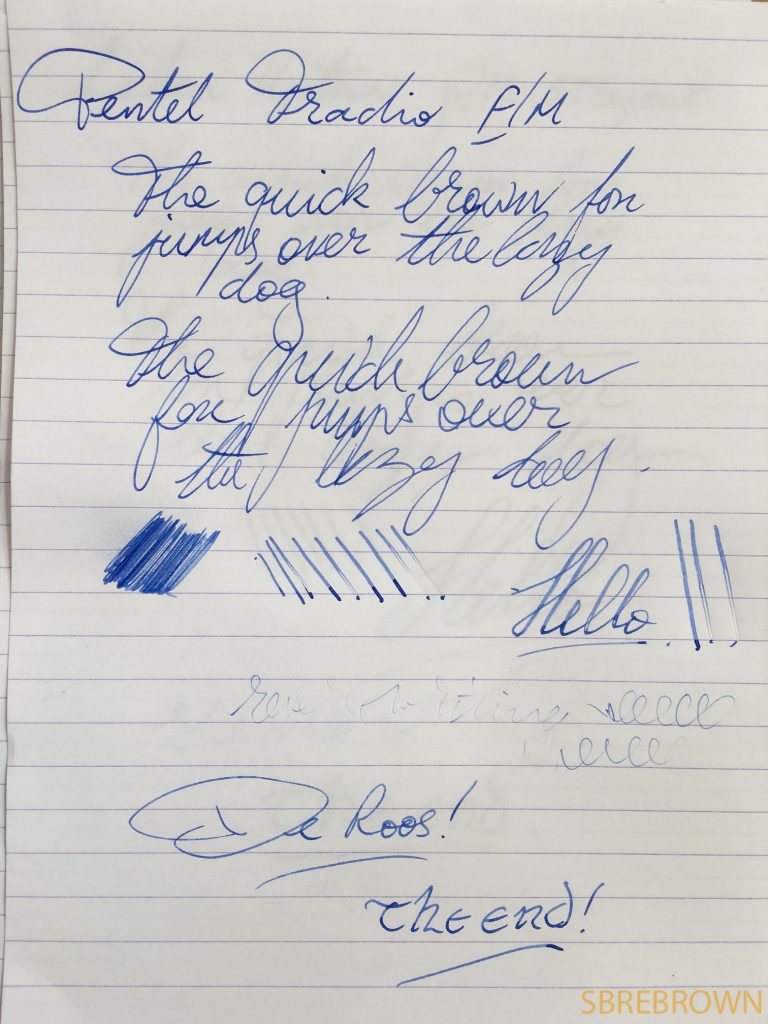 Pentel Tradio F/M
The quick brown fox
jumps over the lazy
dog.
The quick brown
fox jumps over
the lazy dog.
Hello
Reverse Writing
De Roos!
The end!
SBREBROWN